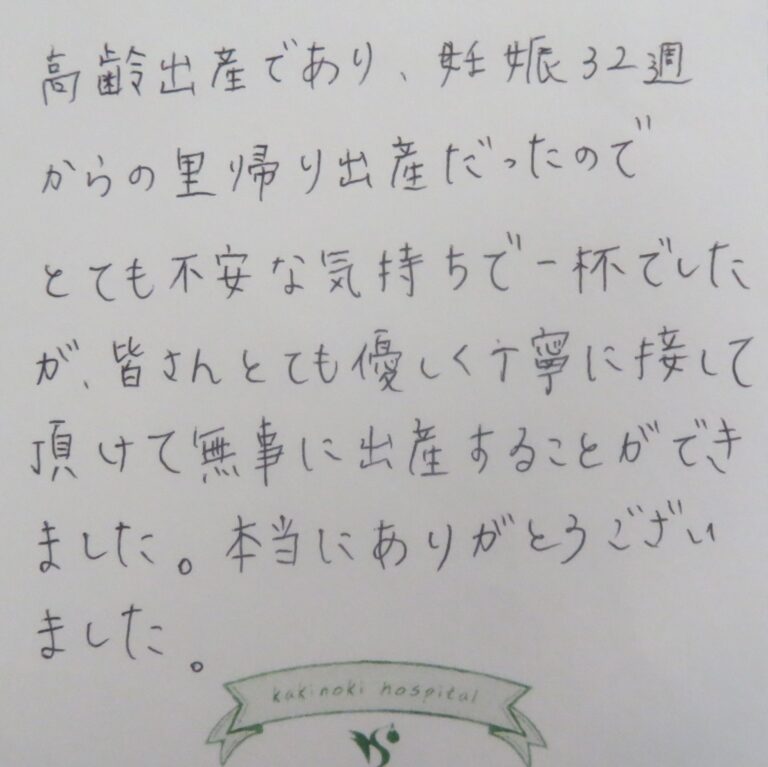 高齢出産であり、妊娠32週
からの里帰り出産だったので
とても不安な気持ちで一杯でした
が、皆さんとても優しく丁寧に接して
頂けて無事に出産することができ
ました。本当にありがとうござい
ました。
kakinoki hospital